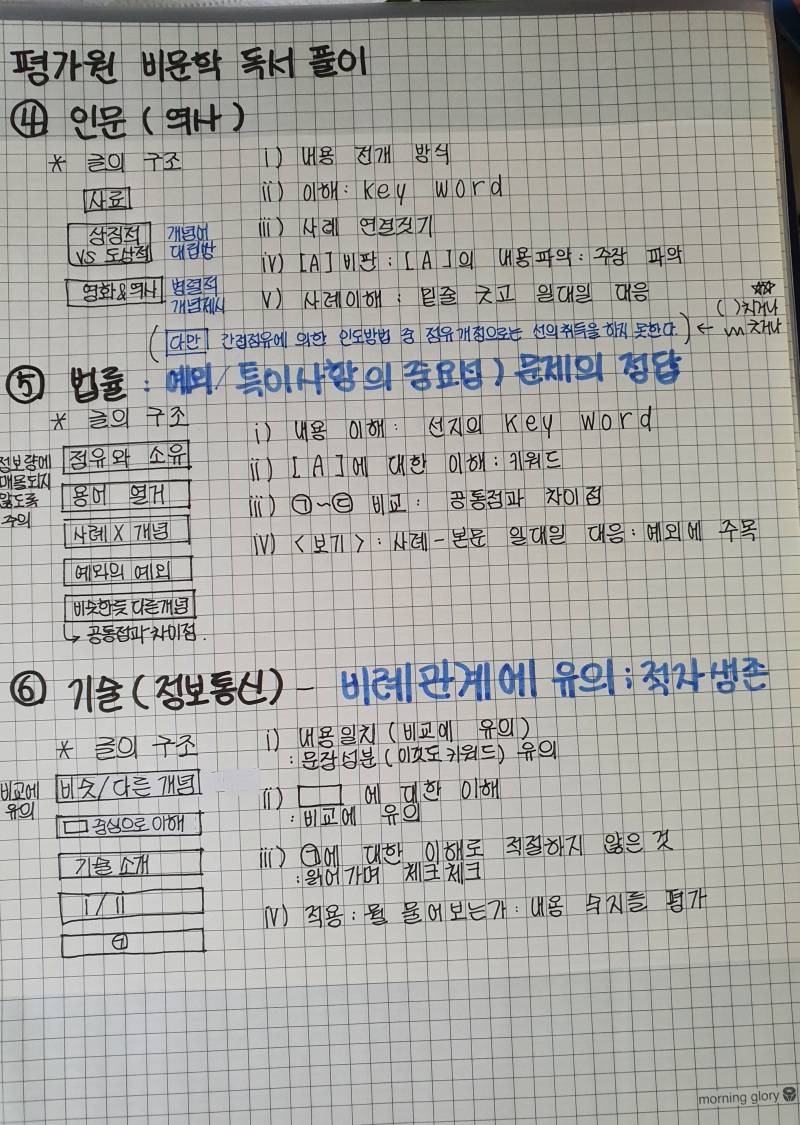 평가원 비문학 독서 풀이
④ 인문 ( 역사 )
* 글의 구조
사료
상징적
VS 도상적
개념어
대립쌍
영화&역사
병렬적
개념제시
i) 내용 전개 방식
ii) 이해: key word
iii) 사례 연결짓기
iv) [A] 비판 : [A]의 내용파악: 주장 파악
v) 사례이해 : 밑줄 긋고 일대일 대응
( 다만 간접점유에 의한 인도방법 중 점유개정으로는 선의취득을 하지 못한다.) ←
( )치거나
치거나
⑤ 법률 : 예외/특이사항의 중요성) 문제의 정답
* 글의 구조
정보량에
매몰되지
않도록
주의
점유와 소유
용어 열거
사례 X 개념
예외의 예외
비슷한듯 다른개념
↳ 공통점과 차이점.
i) 내용 이해: 선지의 key word
ii) [A]에 대한 이해: 키워드
iii) ㉠~㉢ 비교: 공통점과 차이점
iv) <보기>: 사례-본문 일대일 대응: 예외에 주목
⑥ 기술 (정보통신) - 비례관계에 유의 ; 적자생존
* 글의 구조
비교에
유의
비슷/다른 개념
▭ 중심으로 이해
기술 소개
i / ii
㉠
i) 내용일치 (비교에 유의)
: 문장성분 (이것도 키워드) 유의
ii) ▭ 에 대한 이해
: 비교에 유의
iii) ㉠에 대한 이해로 적절하지 않은 것
: 읽어가며 체크체크
iv) 적용: 뭘 물어보는가: 내용 숙지를 평가
morning glory